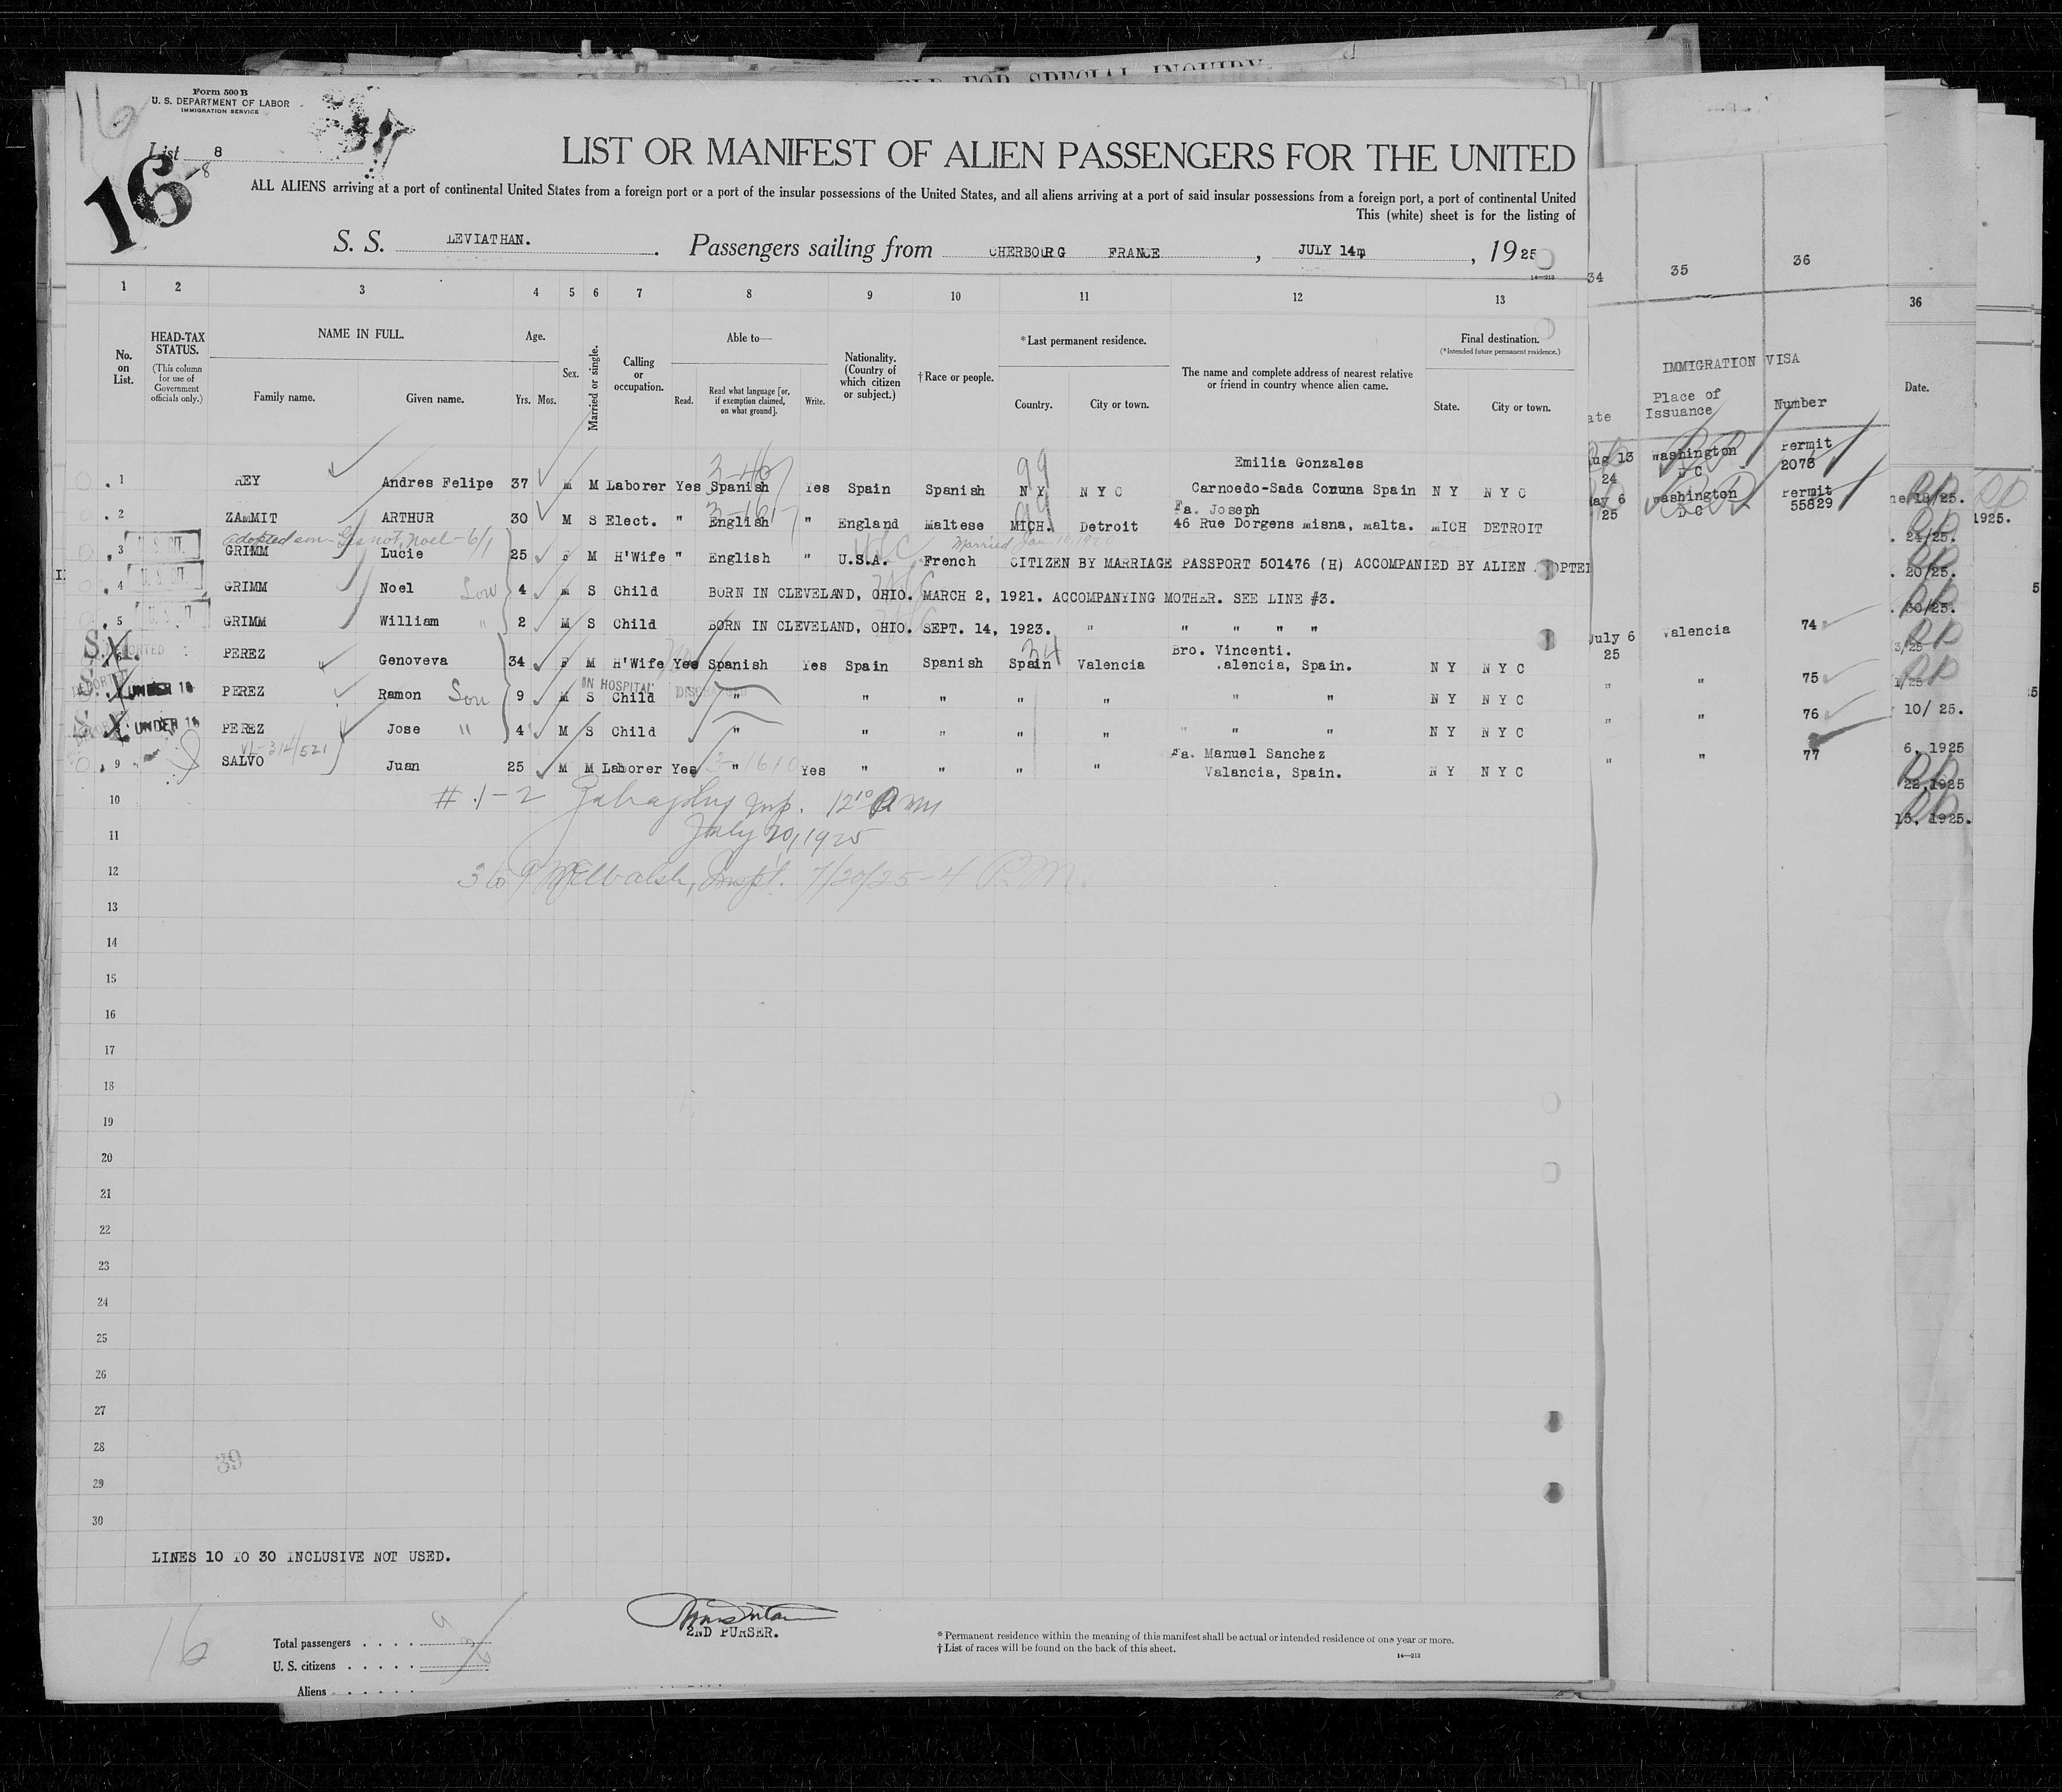 FOR SPECIAL INQUIRY
16
Form 500 B
U. S. DEPARTMENT OF LABOR
IMMIGRATION SERVICE
List 8
-8
16
LIST OR MANIFEST OF ALIEN PASSENGERS FOR THE UNITED
ALL ALIENS arriving at a port of continental United States from a foreign port or a port of the insular possessions of the United States, and all aliens arriving at a port of said insular possessions from a foreign port, a port of continental United
This (white) sheet is for the listing of
S. S. LEVIATHAN. Passengers sailing from CHERBOURG FRANCE, JULY 14m, 1925
14—213
1 2 3 4 5 6 7 8 9 10 11 12 13 34 35 36 36
No. on List.
HEAD-TAX STATUS.
(This column for use of Government officials only.)
NAME IN FULL.
Family name. Given name.
Age.
Yrs. Mos.
Sex.
Married or single.
Calling or occupation.
Able to—
Read. Read what language [or, if exemption claimed, on what ground]. Write.
Nationality. (Country of which citizen or subject.)
†Race or people.
*Last permanent residence.
Country. City or town.
The name and complete address of nearest relative or friend in country whence alien came.
Final destination.
(*Intended future permanent residence.)
State. City or town.
IMMIGRATION VISA
ate Place of Issuance Number
Date.
Emilia Gonzales
1 REY Andres Felipe 37 M M Laborer Yes Spanish Yes Spain Spanish N Y N Y C Carnoedo-Sada Comuna Spain N Y N Y C Aug 13 24 Washington D C Permit 2073
99
Fa. Joseph
2 ZAMMIT ARTHUR 30 M S Elect. " English " England Maltese MICH. Detroit 46 Rue Dorgens misna, malta. MICH DETROIT May 6 25 Washington D C Permit 55829
99
adopted son - Noel - 6/1
Married Jan. 10, 1920
3 U. S. CIT. GRIMM Lucie 25 F M H'Wife " English " U.S.A. French CITIZEN BY MARRIAGE PASSPORT 501476 (H) ACCOMPANIED BY ALIEN
4 U. S. CIT. GRIMM Noel Son 4 M S Child BORN IN CLEVELAND, OHIO. MARCH 2, 1921. ACCOMPANYING MOTHER. SEE LINE #3.
5 U. S. CIT. GRIMM William " 2 M S Child BORN IN CLEVELAND, OHIO. SEPT. 14, 1923. " " " " "
Bro. Vincenti.
S.I. 6 PEREZ Genoveva 34 F M H'Wife Yes Spanish Yes Spain Spanish Spain Valencia Valencia, Spain. N Y N Y C July 6 25 Valencia 74
34
IN HOSPITAL DISCHARGED
UNDER 16 PEREZ Ramon Son 9 M S Child " " " " " " " N Y N Y C " " 75
UNDER 16 PEREZ Jose " 4 M S Child " " " " " " " N Y N Y C " " 76
VL-314/521
Fa. Manuel Sanchez
9 SALVO Juan 25 M M Laborer Yes " Yes " " " " Valancia, Spain. N Y N Y C " " 77
10 # 1-2 Insp. 12 10
11 July 20, 1925
12 3 to 9 Inspt. 7/20/25-4 P.M.
13
14
15
16
17
18
19
20
21
22
23
24
25
26
27
28
39
29
30
LINES 10 TO 30 INCLUSIVE NOT USED.
16
2ND PURSER.
Total passengers
U. S. citizens
Aliens
* Permanent residence within the meaning of this manifest shall be actual or intended residence of one year or more.
† List of races will be found on the back of this sheet.
14—213
18/25.
1925.
24/25.
20/25.
30/25.
3/25
1/25
10/ 25.
6, 1925
22,1925
15, 1925.
5